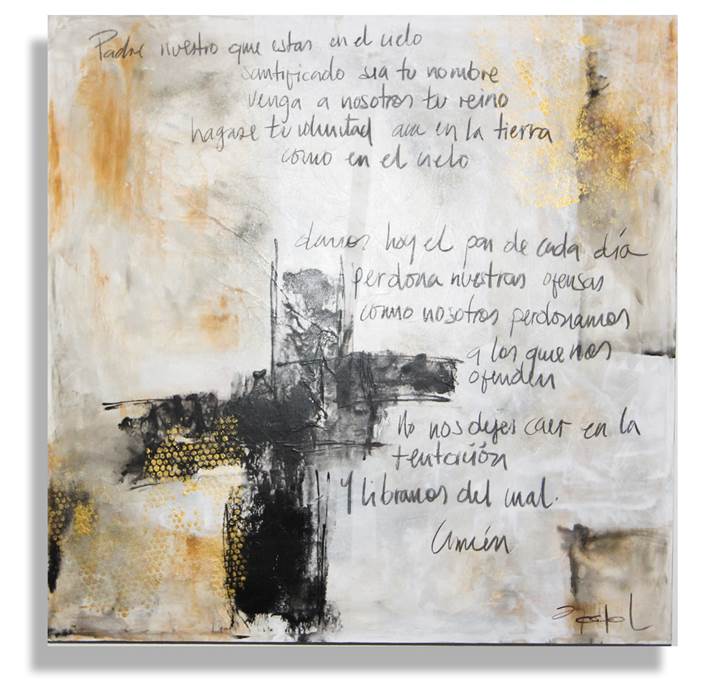 Padre nuestro que estas en el cielo
santificado sea tu nombre
venga a nosotros tu reino
hagase tu voluntad aca en la tierra
como en el cielo
danos hoy el pan de cada día
perdona nuestras ofensas
como nosotros perdonamos
a los que nos
ofenden
No nos dejes caer en la
tentación
Y libranos del mal.
Amén